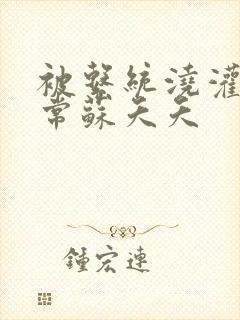 被繫統澆灌
常蘇天天
鍾宏連